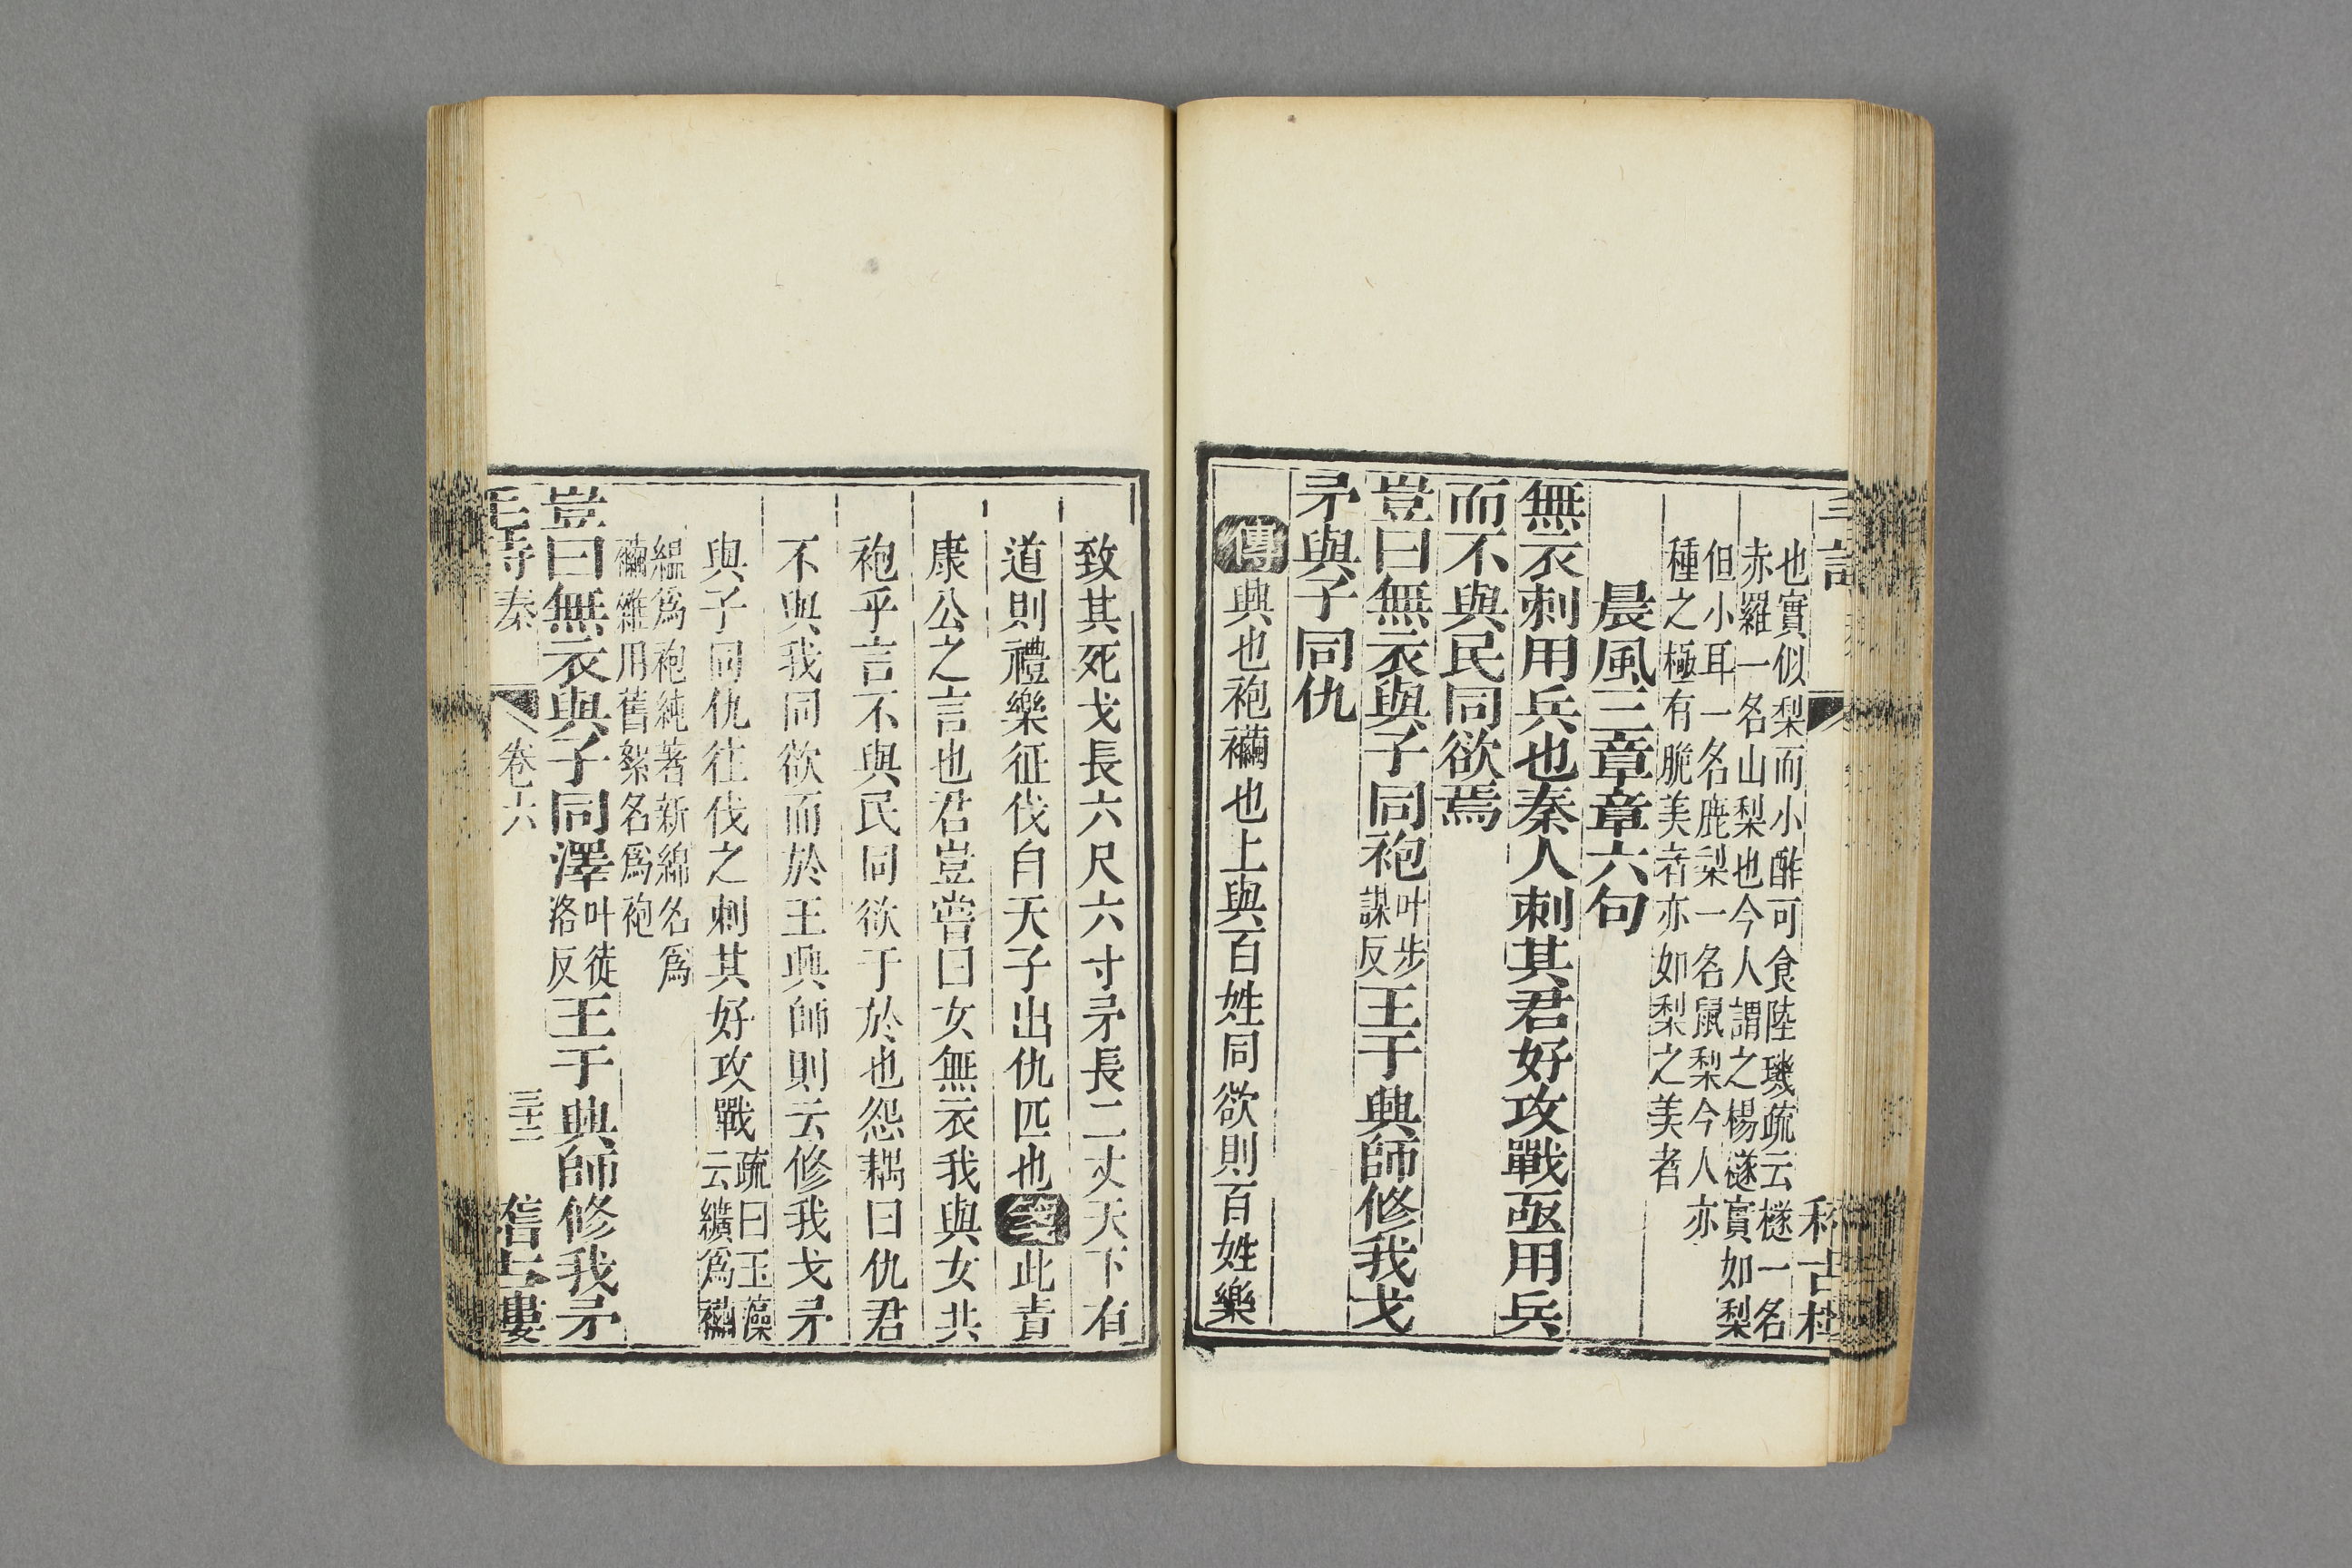 也實似梨而小酢可食陸璣疏云檖一名
赤羅一名山梨也今人謂之楊檖實如梨
但小耳一名鹿梨一名鼠梨今人亦
種之極有脆美者亦如梨之美者
晨風三章章六句
無衣刺用兵也秦人刺其君好攻戰亟用兵
而不與民同欲焉
豈曰無衣與子同袍叶步謀反王于興師修我戈
矛與子同仇
傳興也袍襺也上與百姓同欲則百姓樂
致其死戈長六尺六寸矛長二丈天下有
道則禮樂征伐自天子出仇匹也箋此責
康公之言也君豈嘗曰女無衣我與女共
袍乎言不與民同欲于於也怨耦曰仇君
不與我同欲而於王興師則云修我戈矛
與子同仇往伐之刺其好攻戰疏曰玉藻云纊爲襺
緼爲袍純著新綿名爲
襺雜用舊絮名爲袍
豈曰無衣與子同澤叶徒洛反王于興師修我矛
毛詩秦 卷六 三十二 稽古樓